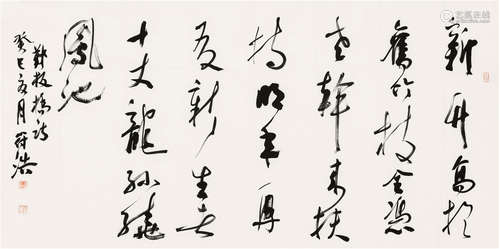 新竹高於
舊竹枝全憑
老幹来扶
持明年再
有新生者
十丈龍孫繞
鳳池
鄭板橋詩
癸巳夏月